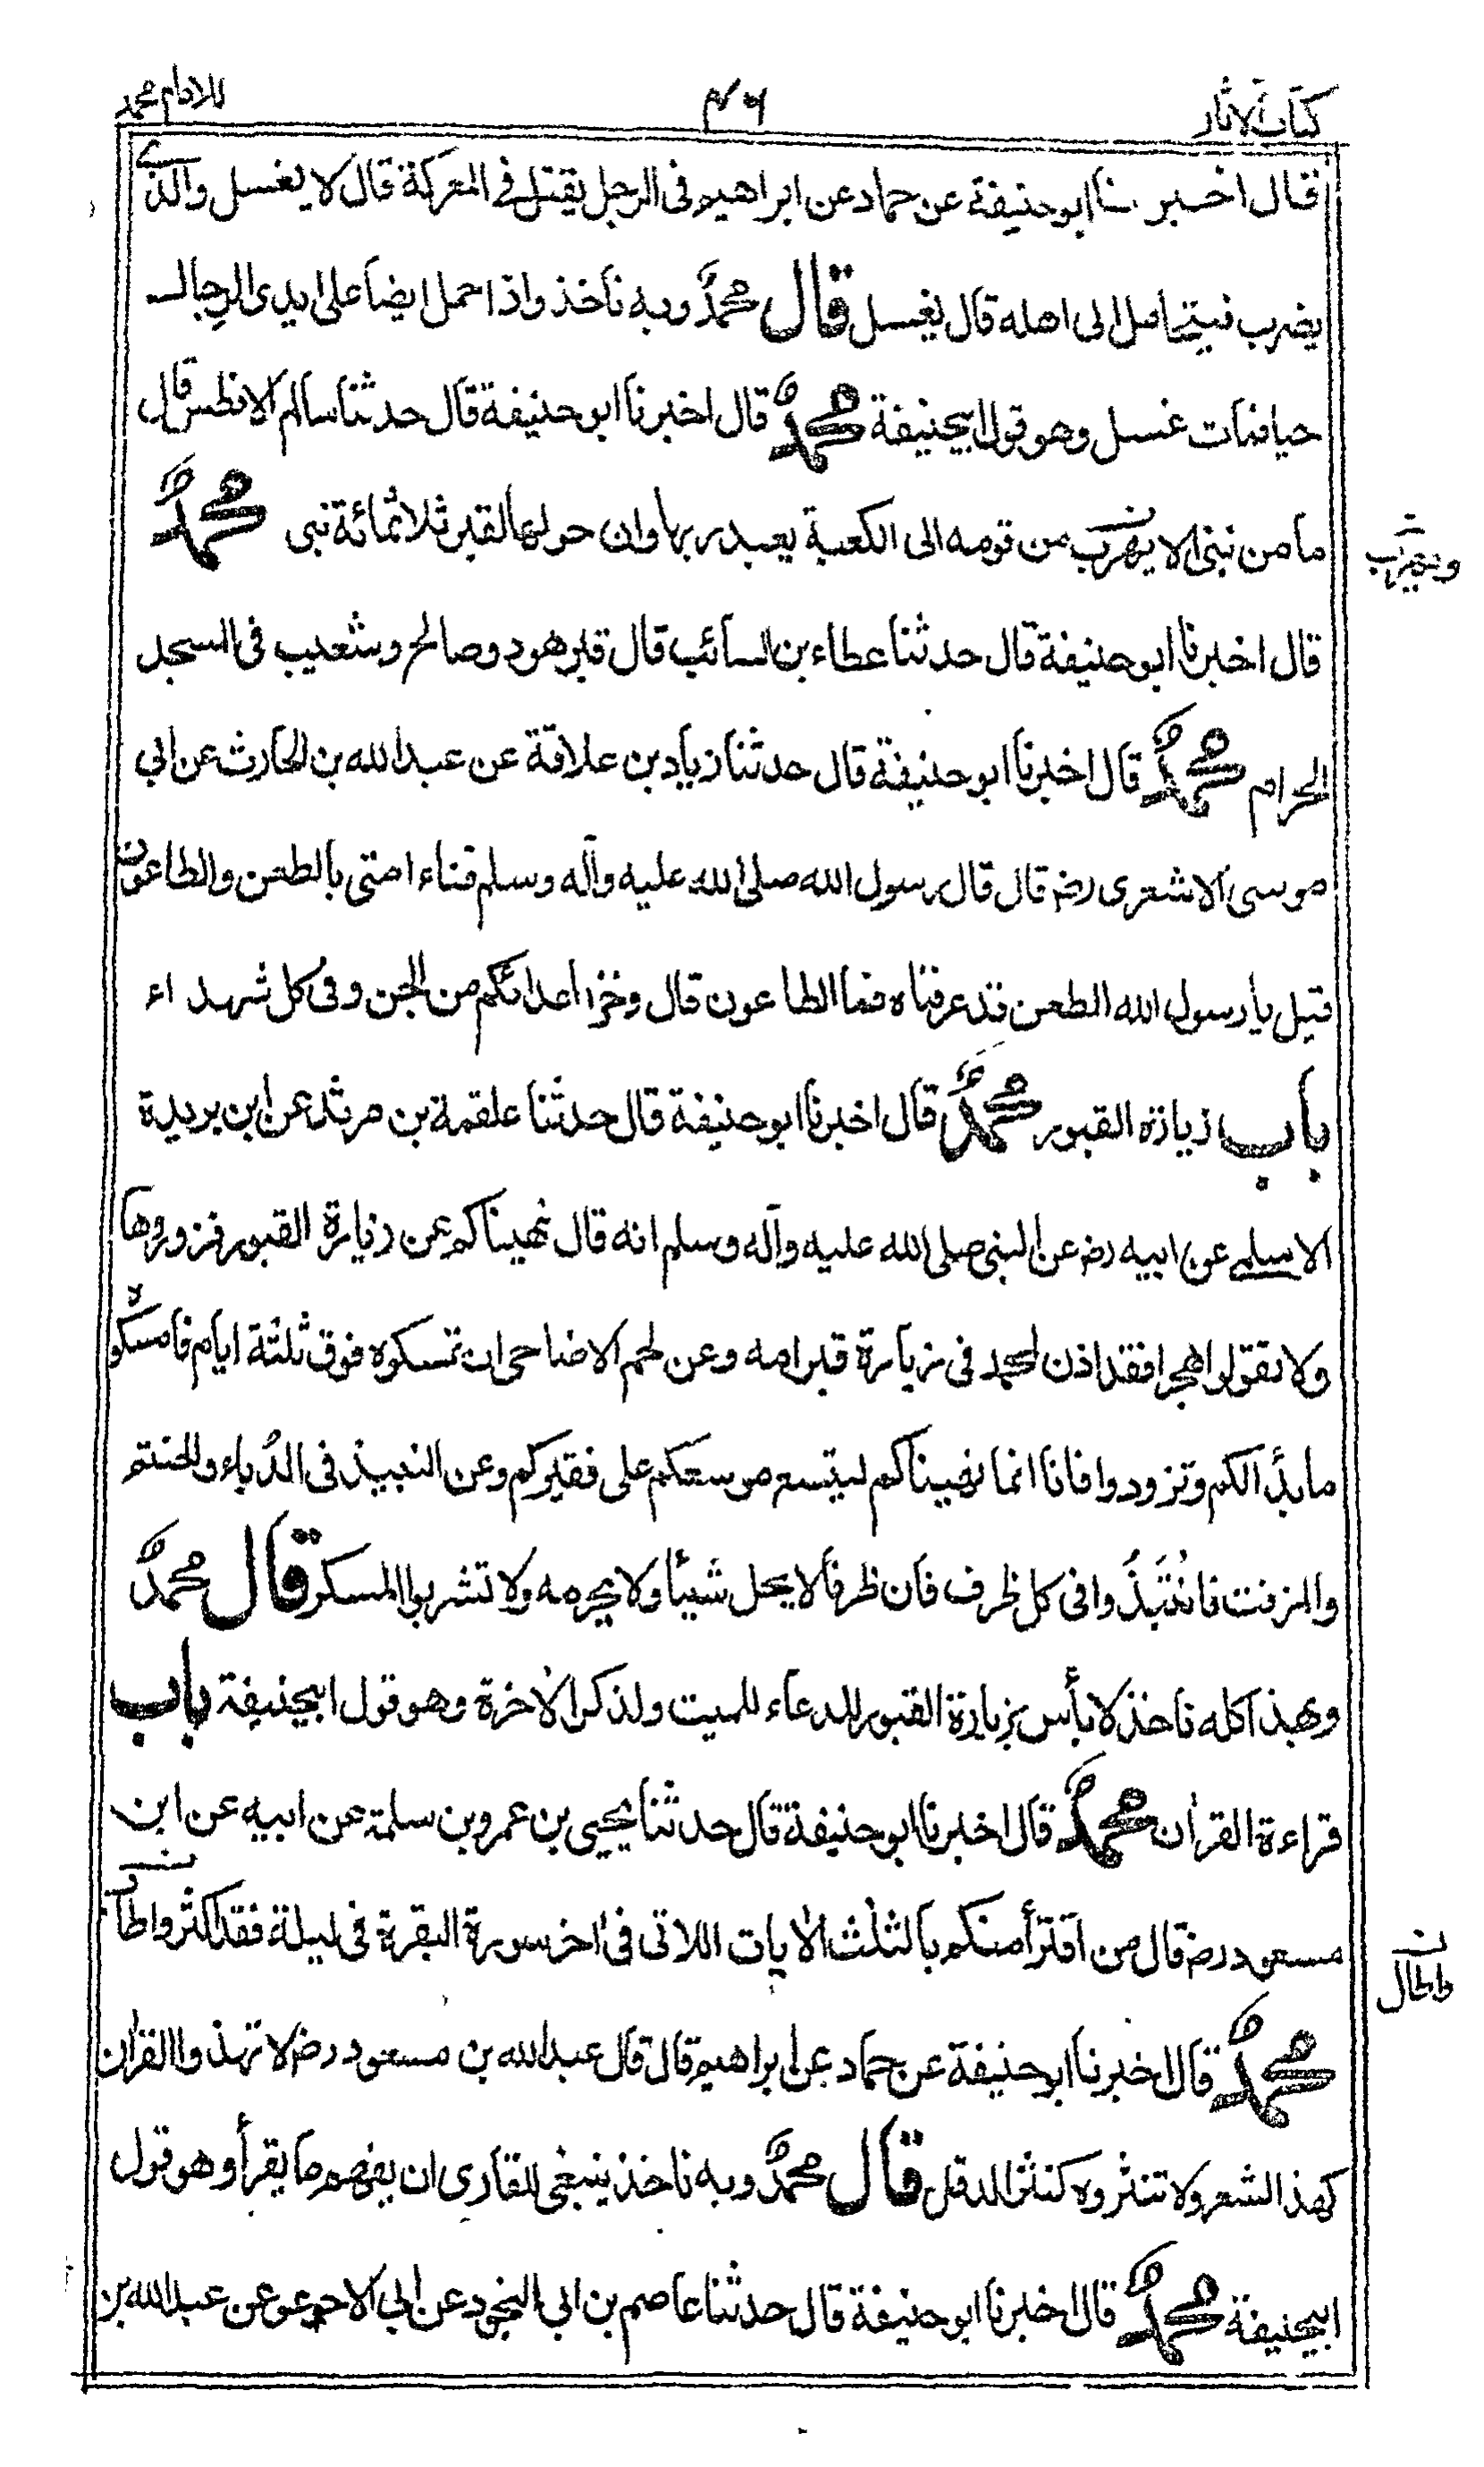 كتاب الاثار
٤٦
للامام محمد
قال اخبرنا ابوحنيفة عن حماد عن ابراهيم فى الرجل يقتل فے المعركة قال لا يغسل والذے
يضرب فيتحامل الى اهله قال يغسل قال محمدؒ وبه ناخذ واذا حمل ايضا على ايدى الرجال
حيا فمات غسل وهو قول ابيحنيفة محمدؒ قال اخبرنا ابوحنيفة قال حدثنا سالم الافطس قال
ما من نبى الا يهرب من قومه الى الكعبة يعبد ربها وان حولها لقبر ثلاثمائة نبى محمدؒ
ويهرب
قال اخبرنا ابوحنيفة قال حدثنا عطاء بن السائب قال قبر هود وصالح وشعيب فى المسجد
الحرام محمدؒ قال اخبرنا ابوحنيفة قال حدثنا زياد بن علاقة عن عبد الله بن الحارث عن ابي
موسى الاشعرى رضـ قال قال رسول الله صلى الله عليه وآله وسلم فناء امتى بالطعن والطاعون
قيل يا رسول الله الطعن قد عرفناه فما الطاعون قال وخز اعدائكم من الجن وفى كل شهداء
باب زيارة القبور محمدؒ قال اخبرنا ابوحنيفة قال حدثنا علقمة بن مرثد عن ابن بريدة
الاسلمے عن ابيه رضـ عن النبى صلى الله عليه وآله وسلم انه قال نهيناكم عن زيارة القبور فزوروها
ولا تقولوا هجرا فقد اذن لمحمد فى زيارة قبر امه وعن لحم الاضاحى ان تمسكوه فوق ثلثة ايام فامسكوه
ما بدأ الكم وتزودوا فانا انما نهيناكم ليتسع موسعكم على فقيركم وعن النبيذ فى الدُباء والحنتم
والمزفت فانتَبذُوا فى كل ظرف فان ظرفا لا يحل شيئا ولا يحرمه ولا تشربوا المسكر قال محمدؒ
وبهذا كله ناخذ لا بأس بزيارة القبور للدعاء للميت ولذكر الاخرة وهو قول ابيحنيفة باب
قراءة القران محمدؒ قال اخبرنا ابوحنيفة قال حدثنا يحيى بن عمرو بن سلمة عن ابيه عن ابن
مسعود رضـ قال من اقترأ منكم بالثلث الايات اللاتى فى اخر سورة البقرة فى ليلة فقد اكثر واطاب
واطال
محمدؒ قال اخبرنا ابوحنيفة عن حماد عن ابراهيم قال قال عبد الله بن مسعود رضـ لا تهذوا القران
كهذ الشعر ولا تنثروه كنثر الدقل قال محمدؒ وبه ناخذ ينبغى للقارى ان يفهم ما يقرأ وهو قول
ابيحنيفة محمدؒ قال اخبرنا ابوحنيفة قال حدثنا عاصم بن ابى النجود عن ابي الاحوص عن عبد الله بن